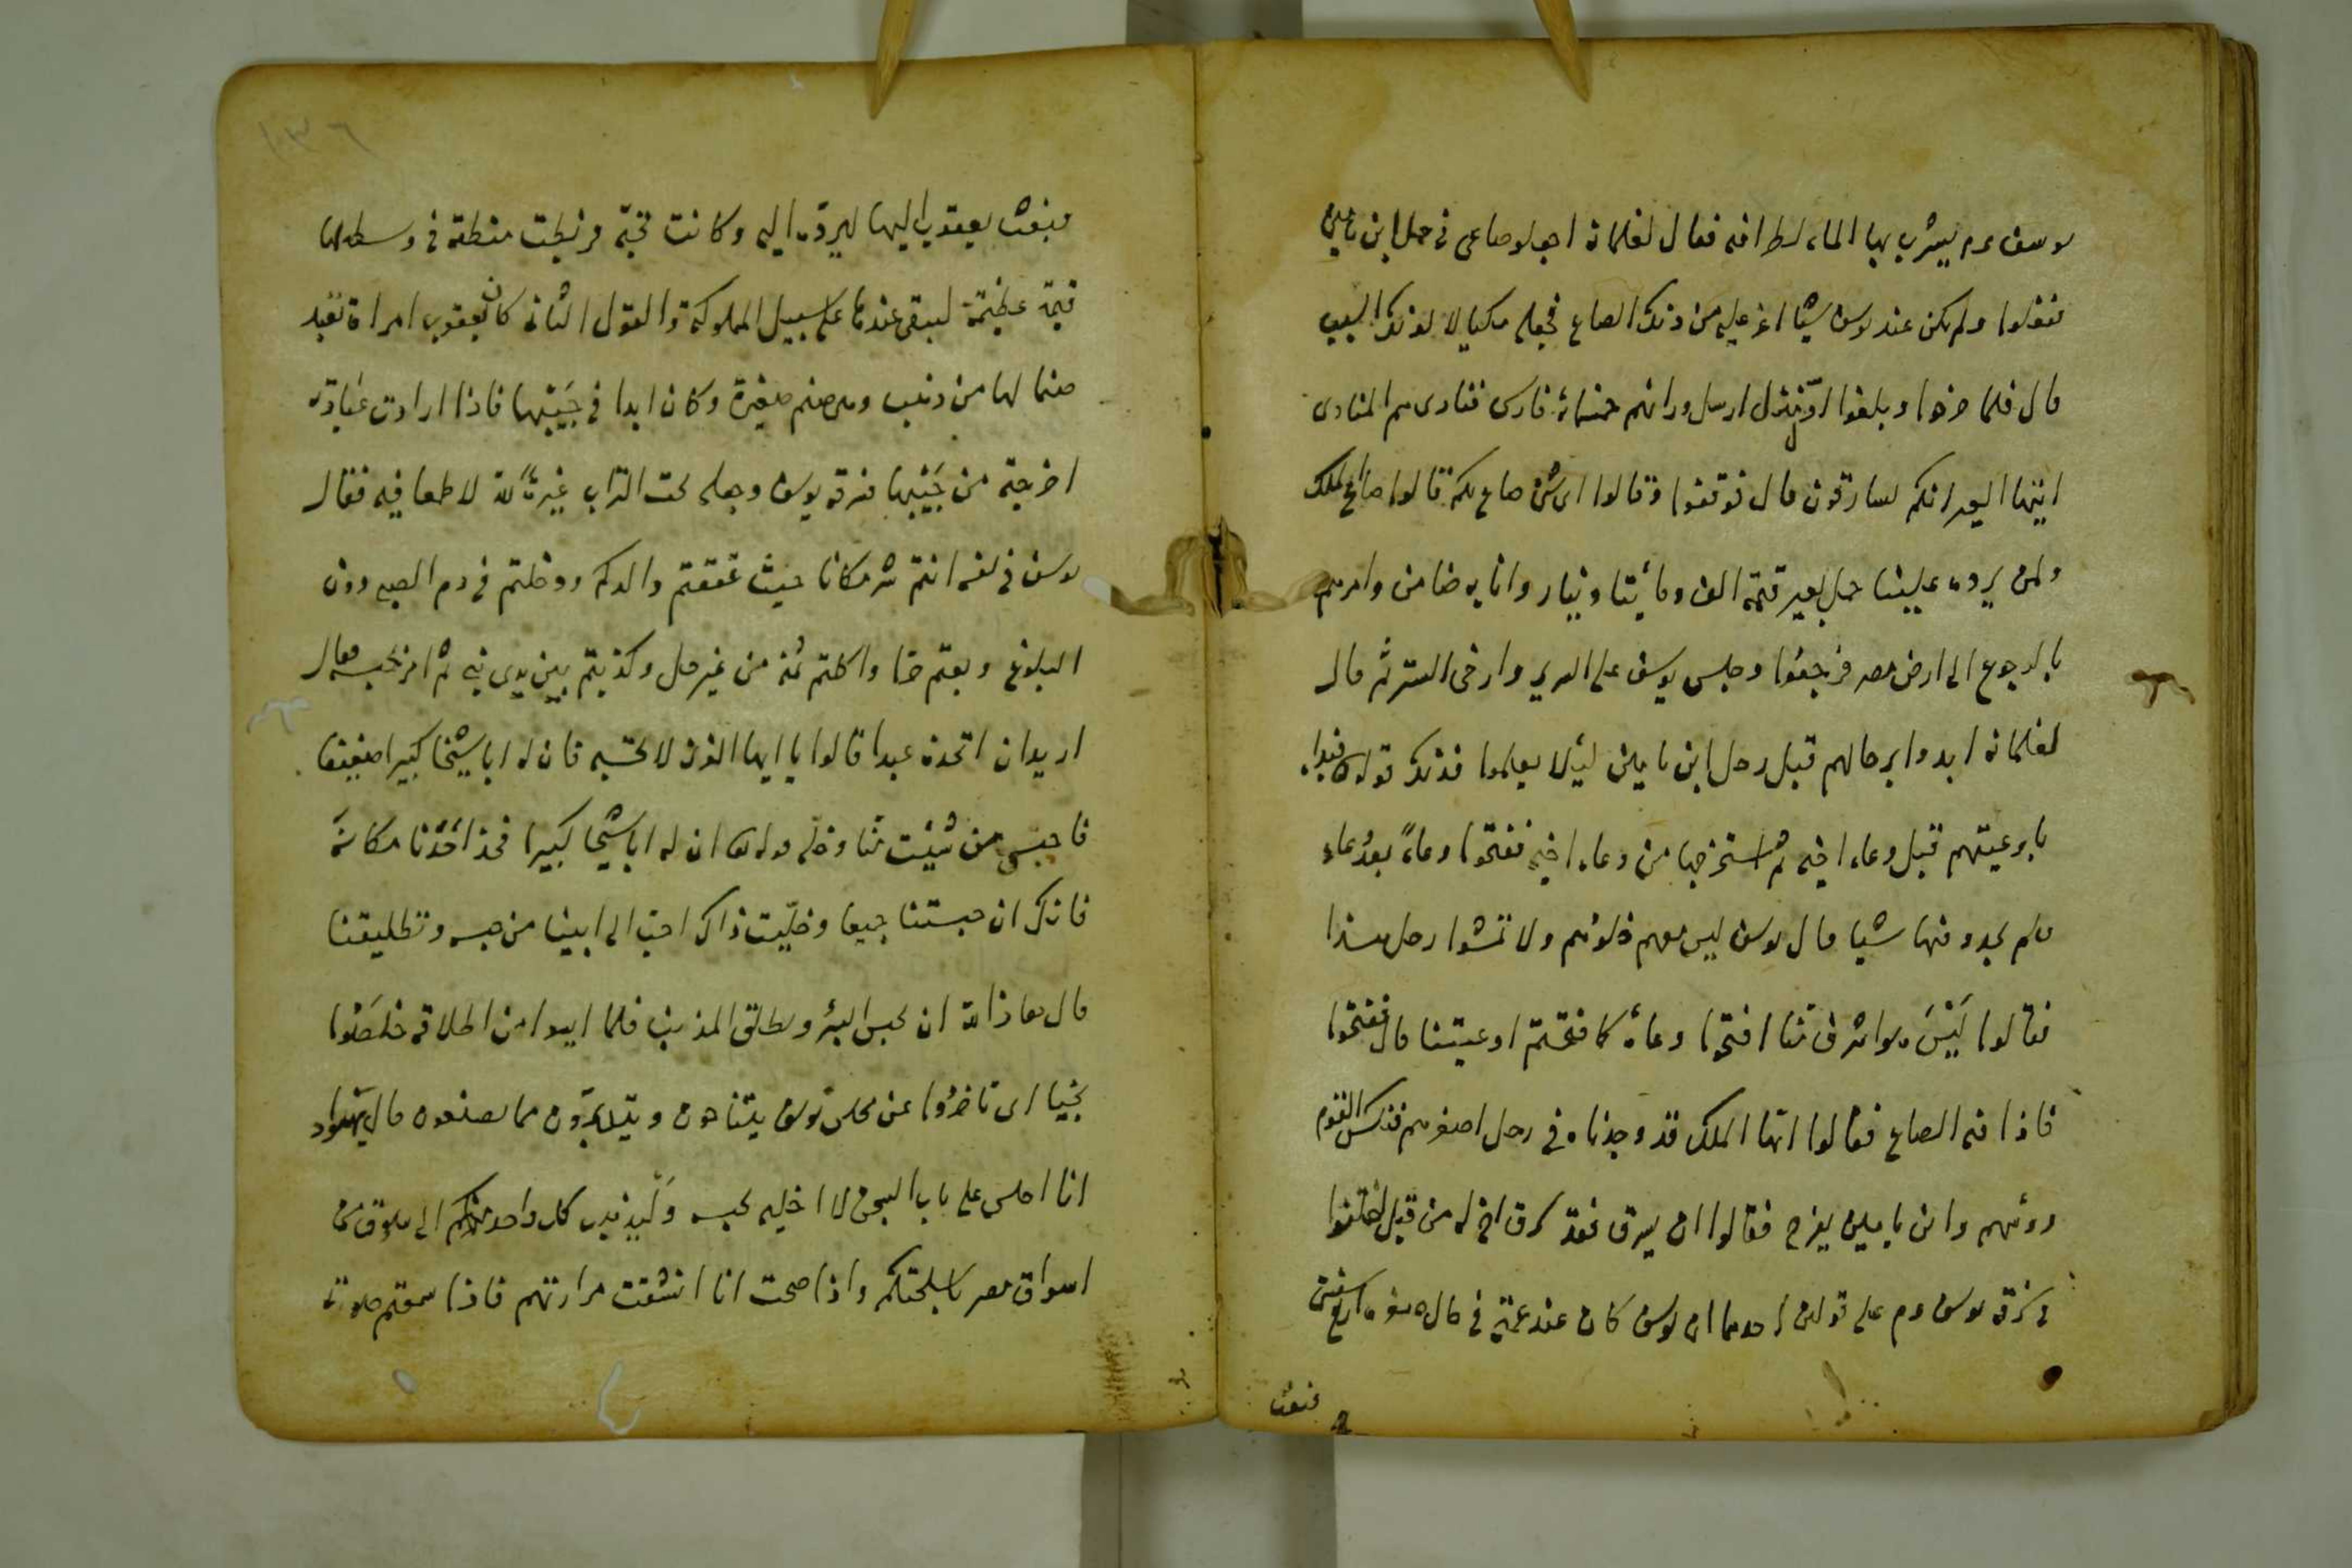 يوسف عم يشرب بها الماء لطرافه فقال لغلمانه اجعلوا صاعى فى حمل ابن يامين
ففعلوا ولم يكن عند يوسف شيئا اعز عليه من ذلك الصاع فجعله مكيالا لذلك السبب
قال فلما خرجوا وبلغوا اول منزل ارسل ورائهم خمسمائة فارس فنادى بهم المنادى
ايتها العير انكم لسارقون قال فوقفوا وقالوا اى شئ ضاع لكم قالوا صاع الملك
ولمن يرده علينا حمل بعير قيمته الف ومائتا دينار وانا به ضامن وامرهم
بالرجوع الى ارض مصر فرجعوا وجلس يوسف على السرير وارخى الستر ثم قال
لغلمانه ابدوا برحالهم قبل رحل ابن يامين لئلا يعلموا فذلك قوله تع فبداء
باوعيتهم قبل وعاء اخيه ثم استخرجها من وعاء اخيه ففتحوا وعاءً بعد وعاء
فلم يجدو فيها شيا قال يوسف ليس معهم خلوهم ولا تفتشوا رحل هذا
فقالوا ليس هو اشرف منا افتحوا وعاءه كما فتحتم اوعيتنا قال ففتحوا
فاذا فيه الصاع فقالوا ايها الملك قد وجدناه فى رحل اصغرهم فنكس القوم
روئسهم وابن يامين يفرح فقالوا ان يسرق فقد سرق اخ له من قبل اختلفوا
فى سرقة يوسف عم على قولين احدهما ان يوسف كان عند عمته فى حال صغره اربع سنين
فبعث
١٣٦
فبعث يعقوب اليها ليرده اليه وكانت تحبه فربطت منطقة فى وسطه لها
قيمة عظيمة ليبقى عندها على سبيل المملوكة والقول الثانى كان ليعقوب امراة تعبد
صنما لها من ذهب وهى صنم صغيرة وكان ابدا فى جيبها فاذا ارادت عبادته
اخرجته من جيبها فسرقه يوسف وجعله تحت التراب غيرةً لله لا طمعا فيه فقال
يوسف فى نفسه انتم شر مكانا حيث عققتم والدكم ودخلتم فى دم الصبى دون
البلوغ وبعتم حرا واكلتم ثمنه من غير حل وكذبتم بين يدى نبى ثم امر بحبسه فقال
اريد ان اتخذه عبدا قالوا يا ايها العزيز لا تحبسه فان له ابا شيخا كبيرا ضعيفا
فاحبس من شئت منا وخله قوله تع ان له ابا شيخا كبيرا فخذ احدنا مكانه
فانك ان حبستنا جميعا وخليت ذاك احب الى ابينا من حبسه وتطليقنا
قال معاذ الله ان نحبس البرئ ونطلق المذنب فلما ايسوا من اطلاقه خلصوا
نجيا اى تاخروا عن مجلس يوسف يتناجون ويتدبرون مما يصنعون قال يهود
انا اجلس على باب السجن لا اخليه يحبسه وليذهب كل واحد منكم الى سوق من
اسواق مصر باسلحتكم واذا صحت انا انشقت مرارتهم فاذا سمعتم صوتى